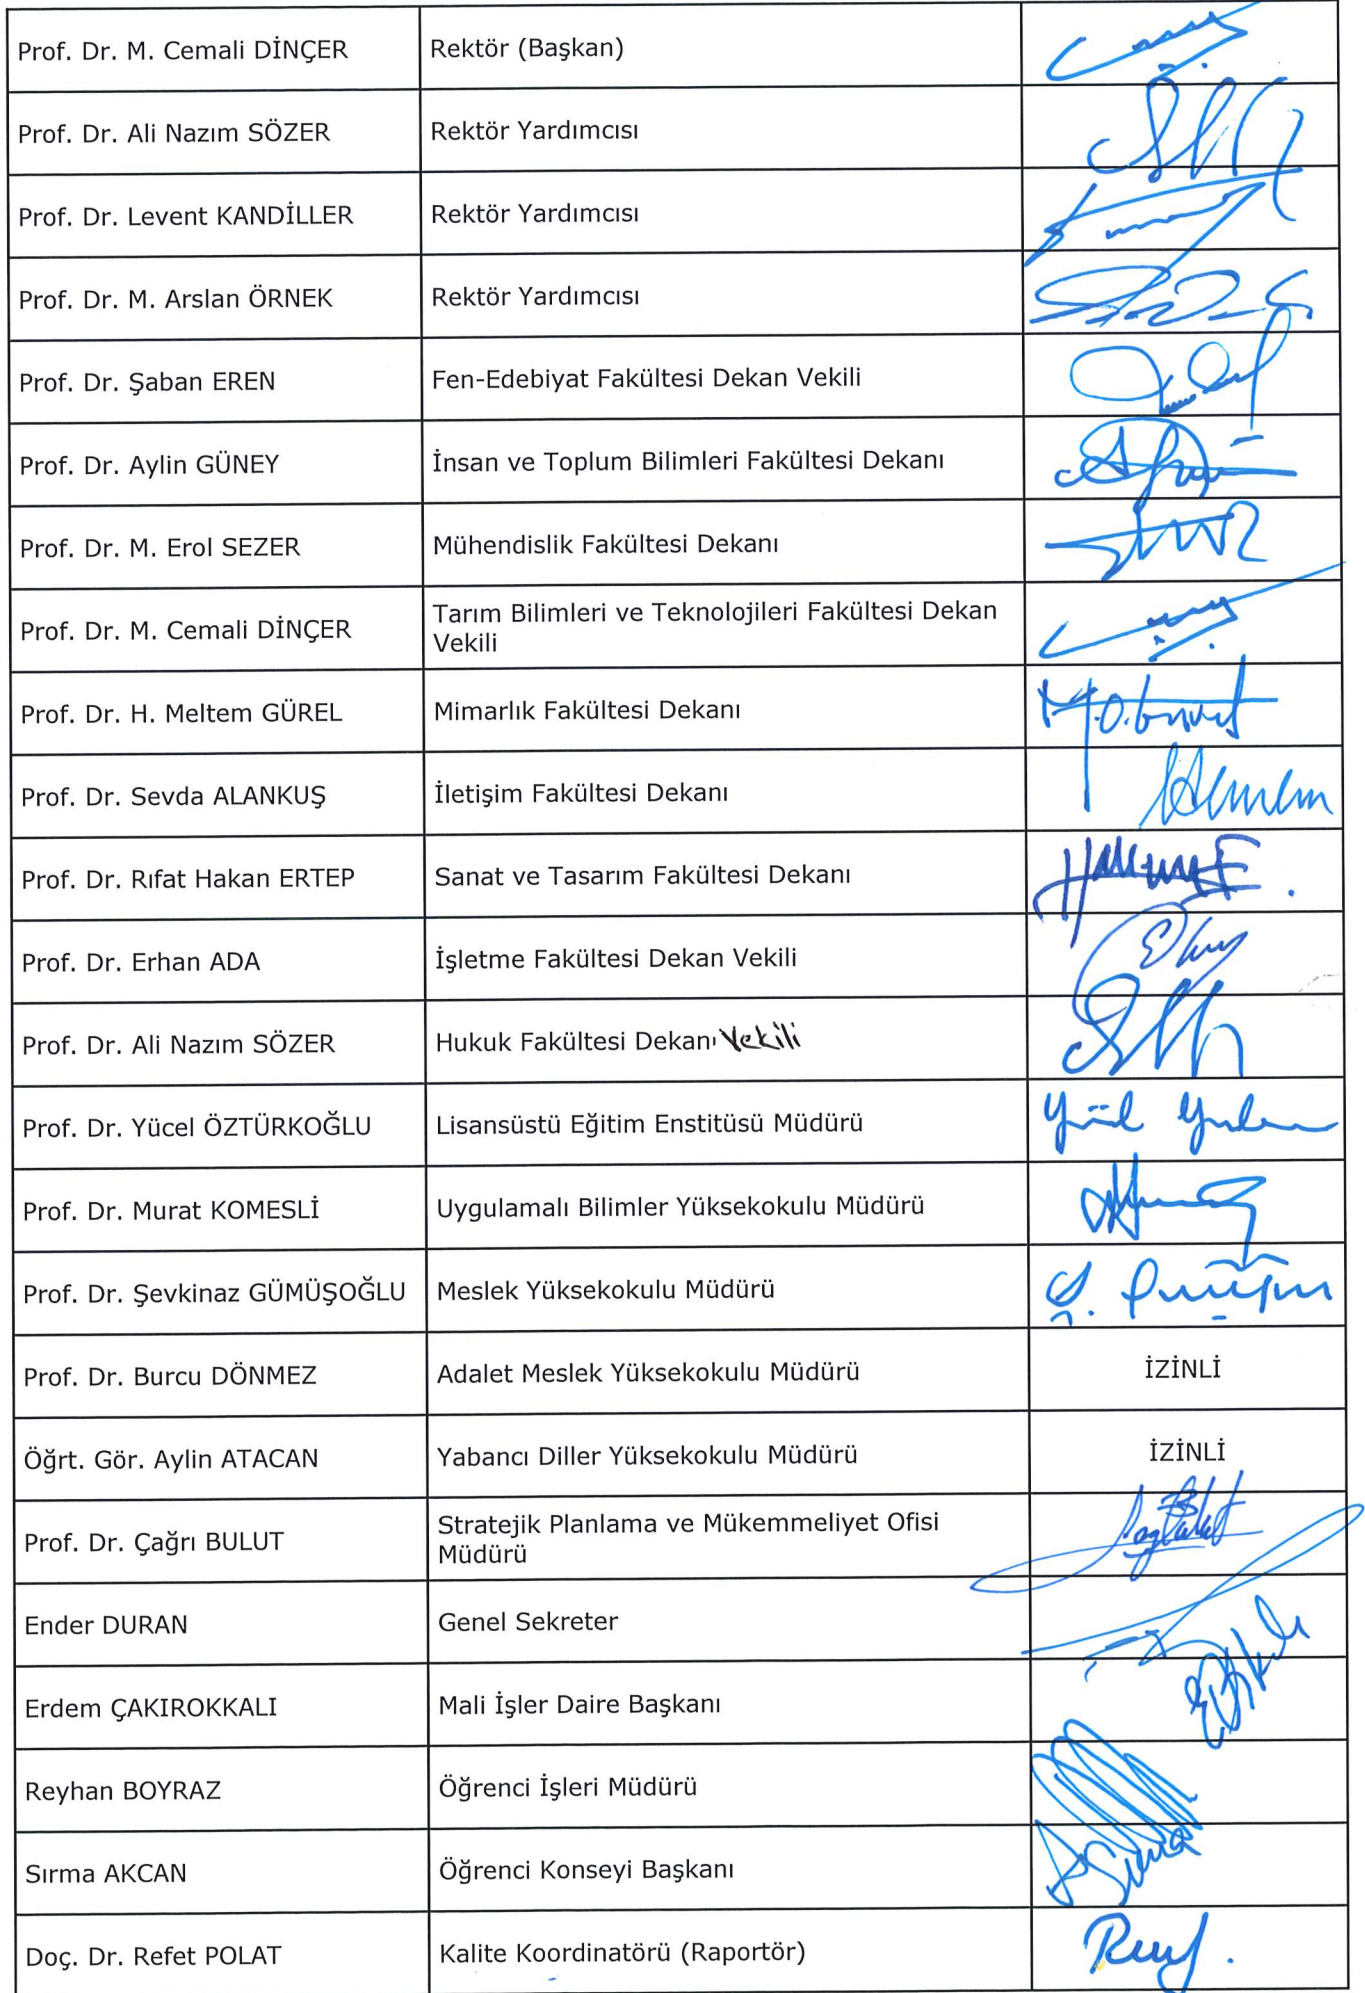 Prof. Dr. M. Cemali DİNÇER
Rektör (Başkan)
Prof. Dr. Ali Nazım SÖZER
Rektör Yardımcısı
Prof. Dr. Levent KANDİLLER
Rektör Yardımcısı
Prof. Dr. M. Arslan ÖRNEK
Rektör Yardımcısı
Prof. Dr. Şaban EREN
Fen-Edebiyat Fakültesi Dekan Vekili
Prof. Dr. Aylin GÜNEY
İnsan ve Toplum Bilimleri Fakültesi Dekanı
Prof. Dr. M. Erol SEZER
Mühendislik Fakültesi Dekanı
Prof. Dr. M. Cemali DİNÇER
Tarım Bilimleri ve Teknolojileri Fakültesi Dekan
Vekili
Prof. Dr. H. Meltem GÜREL
Mimarlık Fakültesi Dekanı
Prof. Dr. Sevda ALANKUŞ
İletişim Fakültesi Dekanı
Prof. Dr. Rıfat Hakan ERTEP
Sanat ve Tasarım Fakültesi Dekanı
Prof. Dr. Erhan ADA
İşletme Fakültesi Dekan Vekili
Prof. Dr. Ali Nazım SÖZER
Hukuk Fakültesi Dekanı Vekili
Prof. Dr. Yücel ÖZTÜRKOĞLU
Lisansüstü Eğitim Enstitüsü Müdürü
Prof. Dr. Murat KOMESLİ
Uygulamalı Bilimler Yüksekokulu Müdürü
Prof. Dr. Şevkinaz GÜMÜŞOĞLU
Meslek Yüksekokulu Müdürü
Prof. Dr. Burcu DÖNMEZ
Adalet Meslek Yüksekokulu Müdürü
İZİNLİ
Öğrt. Gör. Aylin ATACAN
Yabancı Diller Yüksekokulu Müdürü
İZİNLİ
Prof. Dr. Çağrı BULUT
Stratejik Planlama ve Mükemmeliyet Ofisi
Müdürü
Ender DURAN
Genel Sekreter
Erdem ÇAKIROKKALI
Mali İşler Daire Başkanı
Reyhan BOYRAZ
Öğrenci İşleri Müdürü
Sırma AKCAN
Öğrenci Konseyi Başkanı
Doç. Dr. Refet POLAT
Kalite Koordinatörü (Raportör)